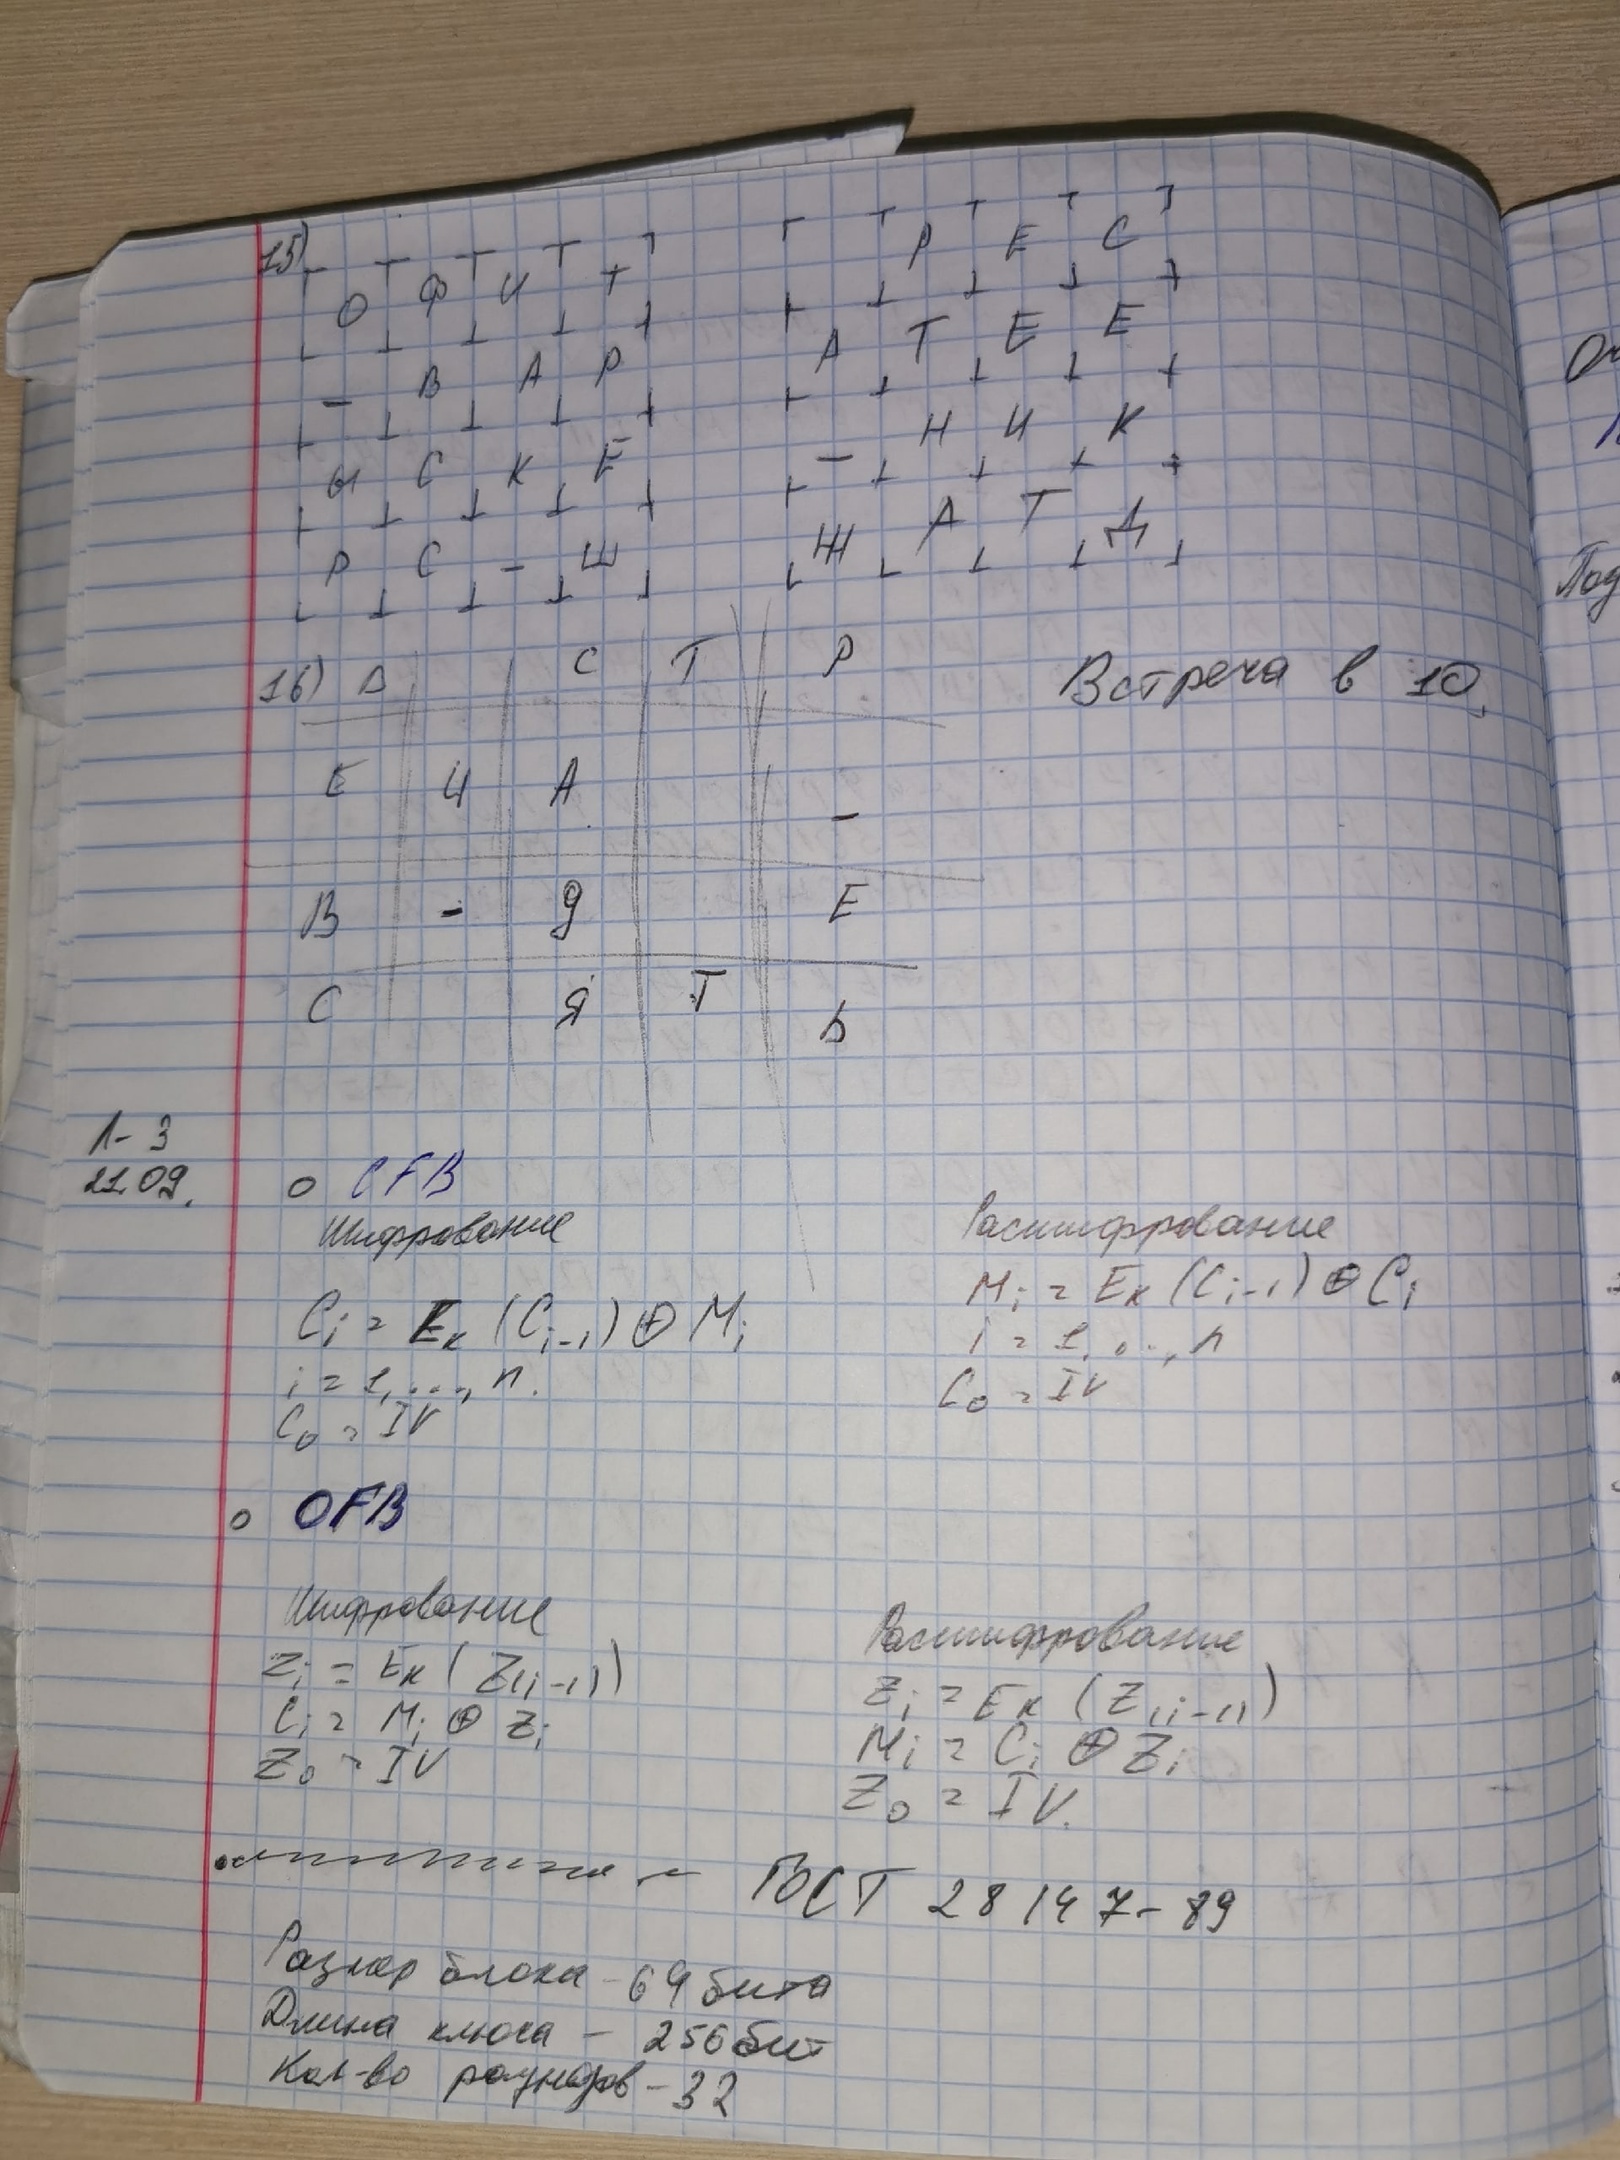 15)
О Ф И Т
- В А Р
Ы С К Е
Р С - Ш
Р Е С
А Т Е Е
- Н И К
Ж А Т Д
16) В С Т Р
Е Ч А -
В - д Е
С я Т Ь
Встреча в 10.
Л-3
21.09.
CFB
Шифрование
Cᵢ = Eₖ (Cᵢ₋₁) ⊕ Mᵢ
i = 1, ..., n.
C₀ = IV
Расшифрование
Mᵢ = Eₖ (Cᵢ₋₁) ⊕ Cᵢ
i = 1, ..., n
C₀ = IV
OFB
Шифрование
Zᵢ = Eₖ (Z₍ᵢ₋₁₎)
Cᵢ = Mᵢ ⊕ Zᵢ
Z₀ = IV
Расшифрование
Zᵢ = Eₖ (Z₍ᵢ₋₁₎)
Mᵢ = Cᵢ ⊕ Zᵢ
Z₀ = IV.
ГОСТ 28147-89
Размер блока - 64 бита
Длина ключа - 256 бит
Кол-во раундов - 32